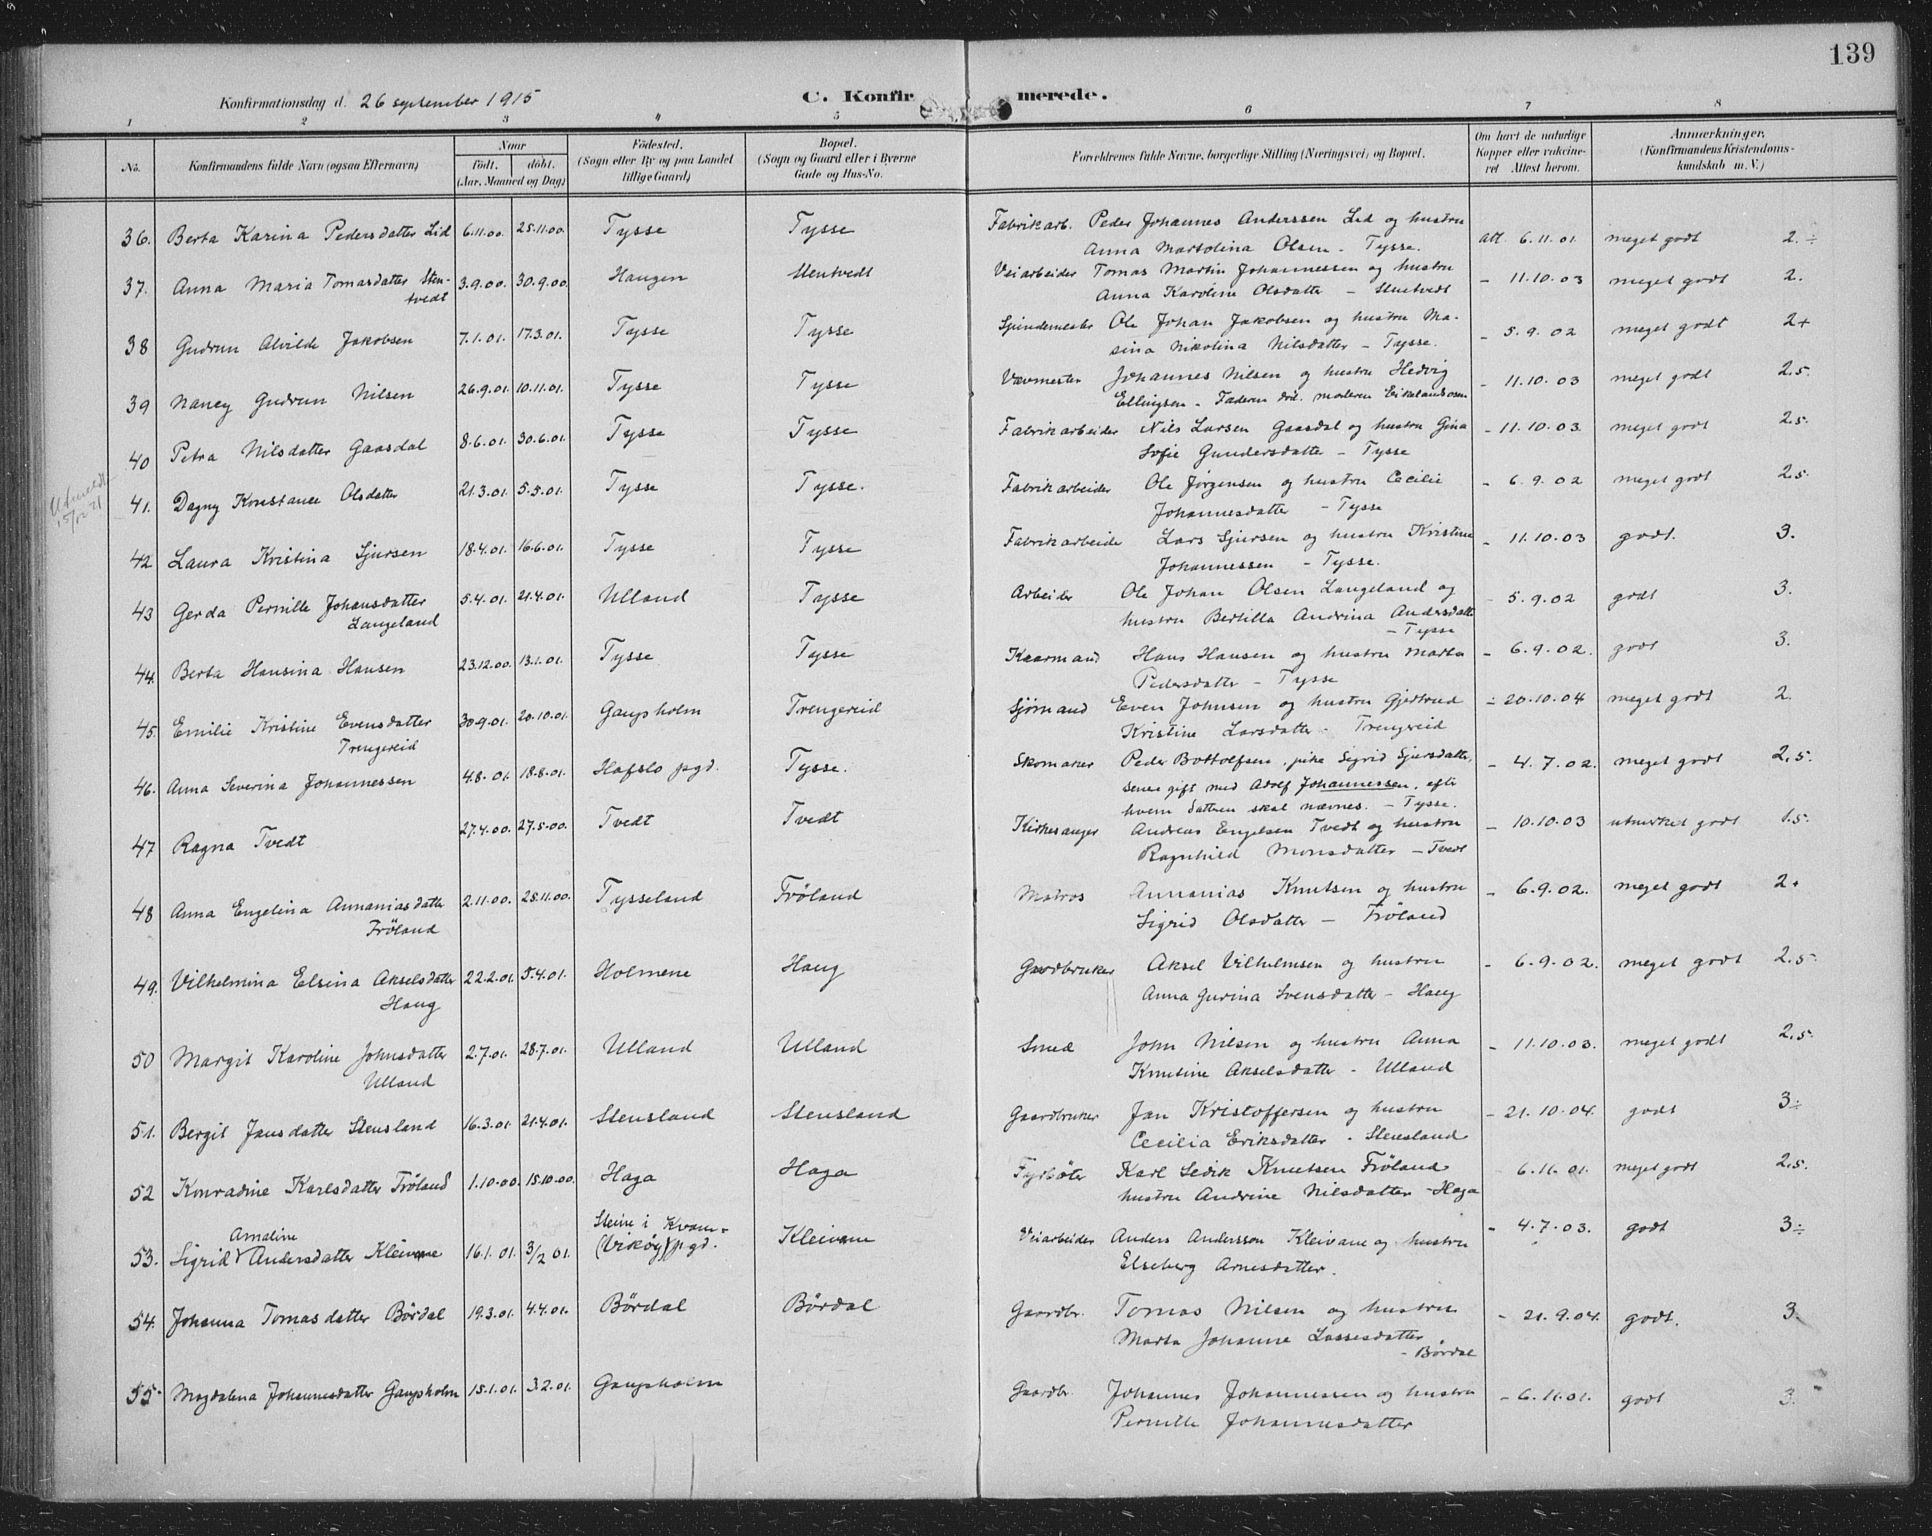 139
Konfirmationsdag d. 26 september 1915 C. Konfirmerede.
1 2 3 4 5 6 7 8
No. Konfirmandens fulde Navn (ogsaa Efternavn) Naar født. døbt. (Aar, Maaned og Dag) Fødested. (Sogn eller By og paa Landet tillige Gaard) Bopæl. (Sogn og Gaard eller i Byerne Gade og Hus-No. Forældrenes fulde Navne, borgerlige Stilling (Næringsvei) og Bopæl. Om havt de naturlige Kopper eller vakcineret Attest herom. Anmærkninger. (Konfirmandens Kristendomskundskab m. V.)
36. Berta Karina Pedersdatter Lid 6.11.00. 25.11.00. Tysse Tysse Fabrikarb. Peder Johannes Anderssen Lid og hustru att. 6.11.01. meget godt 2.÷
Anna Martolina Olsen - Tysse.
37. Anna Maria Tomasdatter Sten- 3.9.00. 30.9.00. Haugen Stentvedt Veiarbeider Tomas Martin Johannessen og hustru - 11.10.03 meget godt 2.
tvedt Anna Karoline Olsdatter - Stentvedt
38 Gudrun Alvilde Jakobsen 7.1.01. 17.3.01. Tysse Tysse Spindemester Ole Johan Jakobsen og hustru Ma- - 5.9.02 meget godt 2+
sina Nikolina Nilsdatter - Tysse.
39 Nancy Gudrun Nilsen 26.9.01. 10.11.01. Tysse Tysse Vævmester Johannes Nilsen og hustru Hedvig - 11.10.03 meget godt 2.5.
Ellingsen - Faderen død. moderen Eikelandsosen
40 Petra Nilsdatter Gaasdal 8.6.01. 30.6.01. Tysse Tysse Fabrikarbeider Nils Larsen Gaasdal og hustru Gina - 11.10.03. meget godt 2.5.
Sofie Gundersdatter - Tysse
Utmeldt 15/12 21
41. Dagny Konstance Olsdatter 21.3.01. 5.5.01. Tysse Tysse. Fabrikarbeider Ole Jørgensen og hustru Cecilie - 6.9.02 meget godt 2.5
Johannesdatter - Tysse
42 Laura Kristina Sjursen 18.4.01. 16.6.01. Tysse Tysse Fabrikarbeide Lars Sjursen og hustru Kristine - 11.10.03 godt. 3.
Johannessen - Tysse.
43 Gerda Pernille Johansdatter 5.4.01. 21.4.01. Ulland Tysse Arbeider Ole Johan Olsen Langeland og - 5.9.02 godt 3.
Langeland hustru Bertilla Andrina Andersdatt
- Tysse
44. Berta Hansina Hansen 23.12.00. 13.1.01. Tysse Tysse Kaarmand Hans Hansen og hustru Marta - 6.9.02. godt 3.
Pedersdatter - Tysse
45. Emilie Kristine Evensdatter 30.9.01. 20.10.01. Gaupsholm Trengereid Sjømand Even Johnsen og hustru Gjertrud - 20.10.04 meget godt 2.
Trengereid Kristine Larsdatter - Trengereid
46. Anna Severina Johannessen 4.8.01. 18.8.01. Hafslo pgd. Tysse. Skomaker Peder Bottolfsen, pike Sigrid Sjursdatter, - 4.7.02. meget godt 2.5.
senere gift med Adolf Johannessen, efter
hvem datteren skal nævnes. - Tysse.
47 Ragna Tvedt 27.4.00. 27.5.00. Tvedt Tvedt Kirkesanger Andreas Engelsen Tvedt og hustru - 10.10.03 utmerket godt 1.5.
Ragnhild Monsdatter - Tvedt
48 Anna Engelina Annaniasdatter 2.11.00. 25.11.00. Tysseland Frøland Matros Annanias Knutsen og hustru - 6.9.02. meget godt 2+
Frøland Sigrid Olsdatter - Frøland
49. Vilhelmina Elsina Akselsdatter 22.2.01. 5.4.01. Holmene Haug Gaardbruker Aksel Vilhelmsen og hustru - 6.9.02. meget godt 2.5.
Haug Anna Gurina Svensdatter - Haug
50 Margit Karoline Johnsdatter 2.7.01. 28.7.01. Ulland Ulland Smed John Nilsen og hustru Anna - 11.10.03. meget godt 2.5.
Ulland Knutine Akselsdatter - Ulland
51. Bergit Jansdatter Stensland 16.3.01. 21.4.01. Stensland Stensland Gaardbruker Jan Kristoffersen og hustru - 21.10.04. godt 3÷
Cecilia Eriksdatter - Stensland
52 Konradine Karlsdatter Frøland 1.10.00. 15.10.00. Haga Haga Fyrbøter Karl Sedik Knutsen Frøland 6.11.01. meget godt 2.5.
hustru Andrine Nilsdatter - Haga
Amaline Steine i Kvam-
53. Sigrid Andersdatter Kleivane 16.1.01. 3/2 01. (Vikøy) pgd. Kleivane Veiarbeider Anders Andersson Kleivane og hustru - 4.7.03. godt 3÷
Elseberg Arnesdatter.
54. Johanna Tomasdatter Børdal 19.3.01. 4.4.01. Børdal Børdal Gaardbr. Tomas Nilsen og hustru - 21.9.04. godt. 3.
Marta Johanne Lassesdatter
- Børdal
55. Magdalena Johannesdatter Gaupsholm 15.1.01. 3.2.01. Gaupsholm Gaardbr. Johannes Johannessen og hustru - 6.11.01. godt 3.
Pernille Johannesdatter